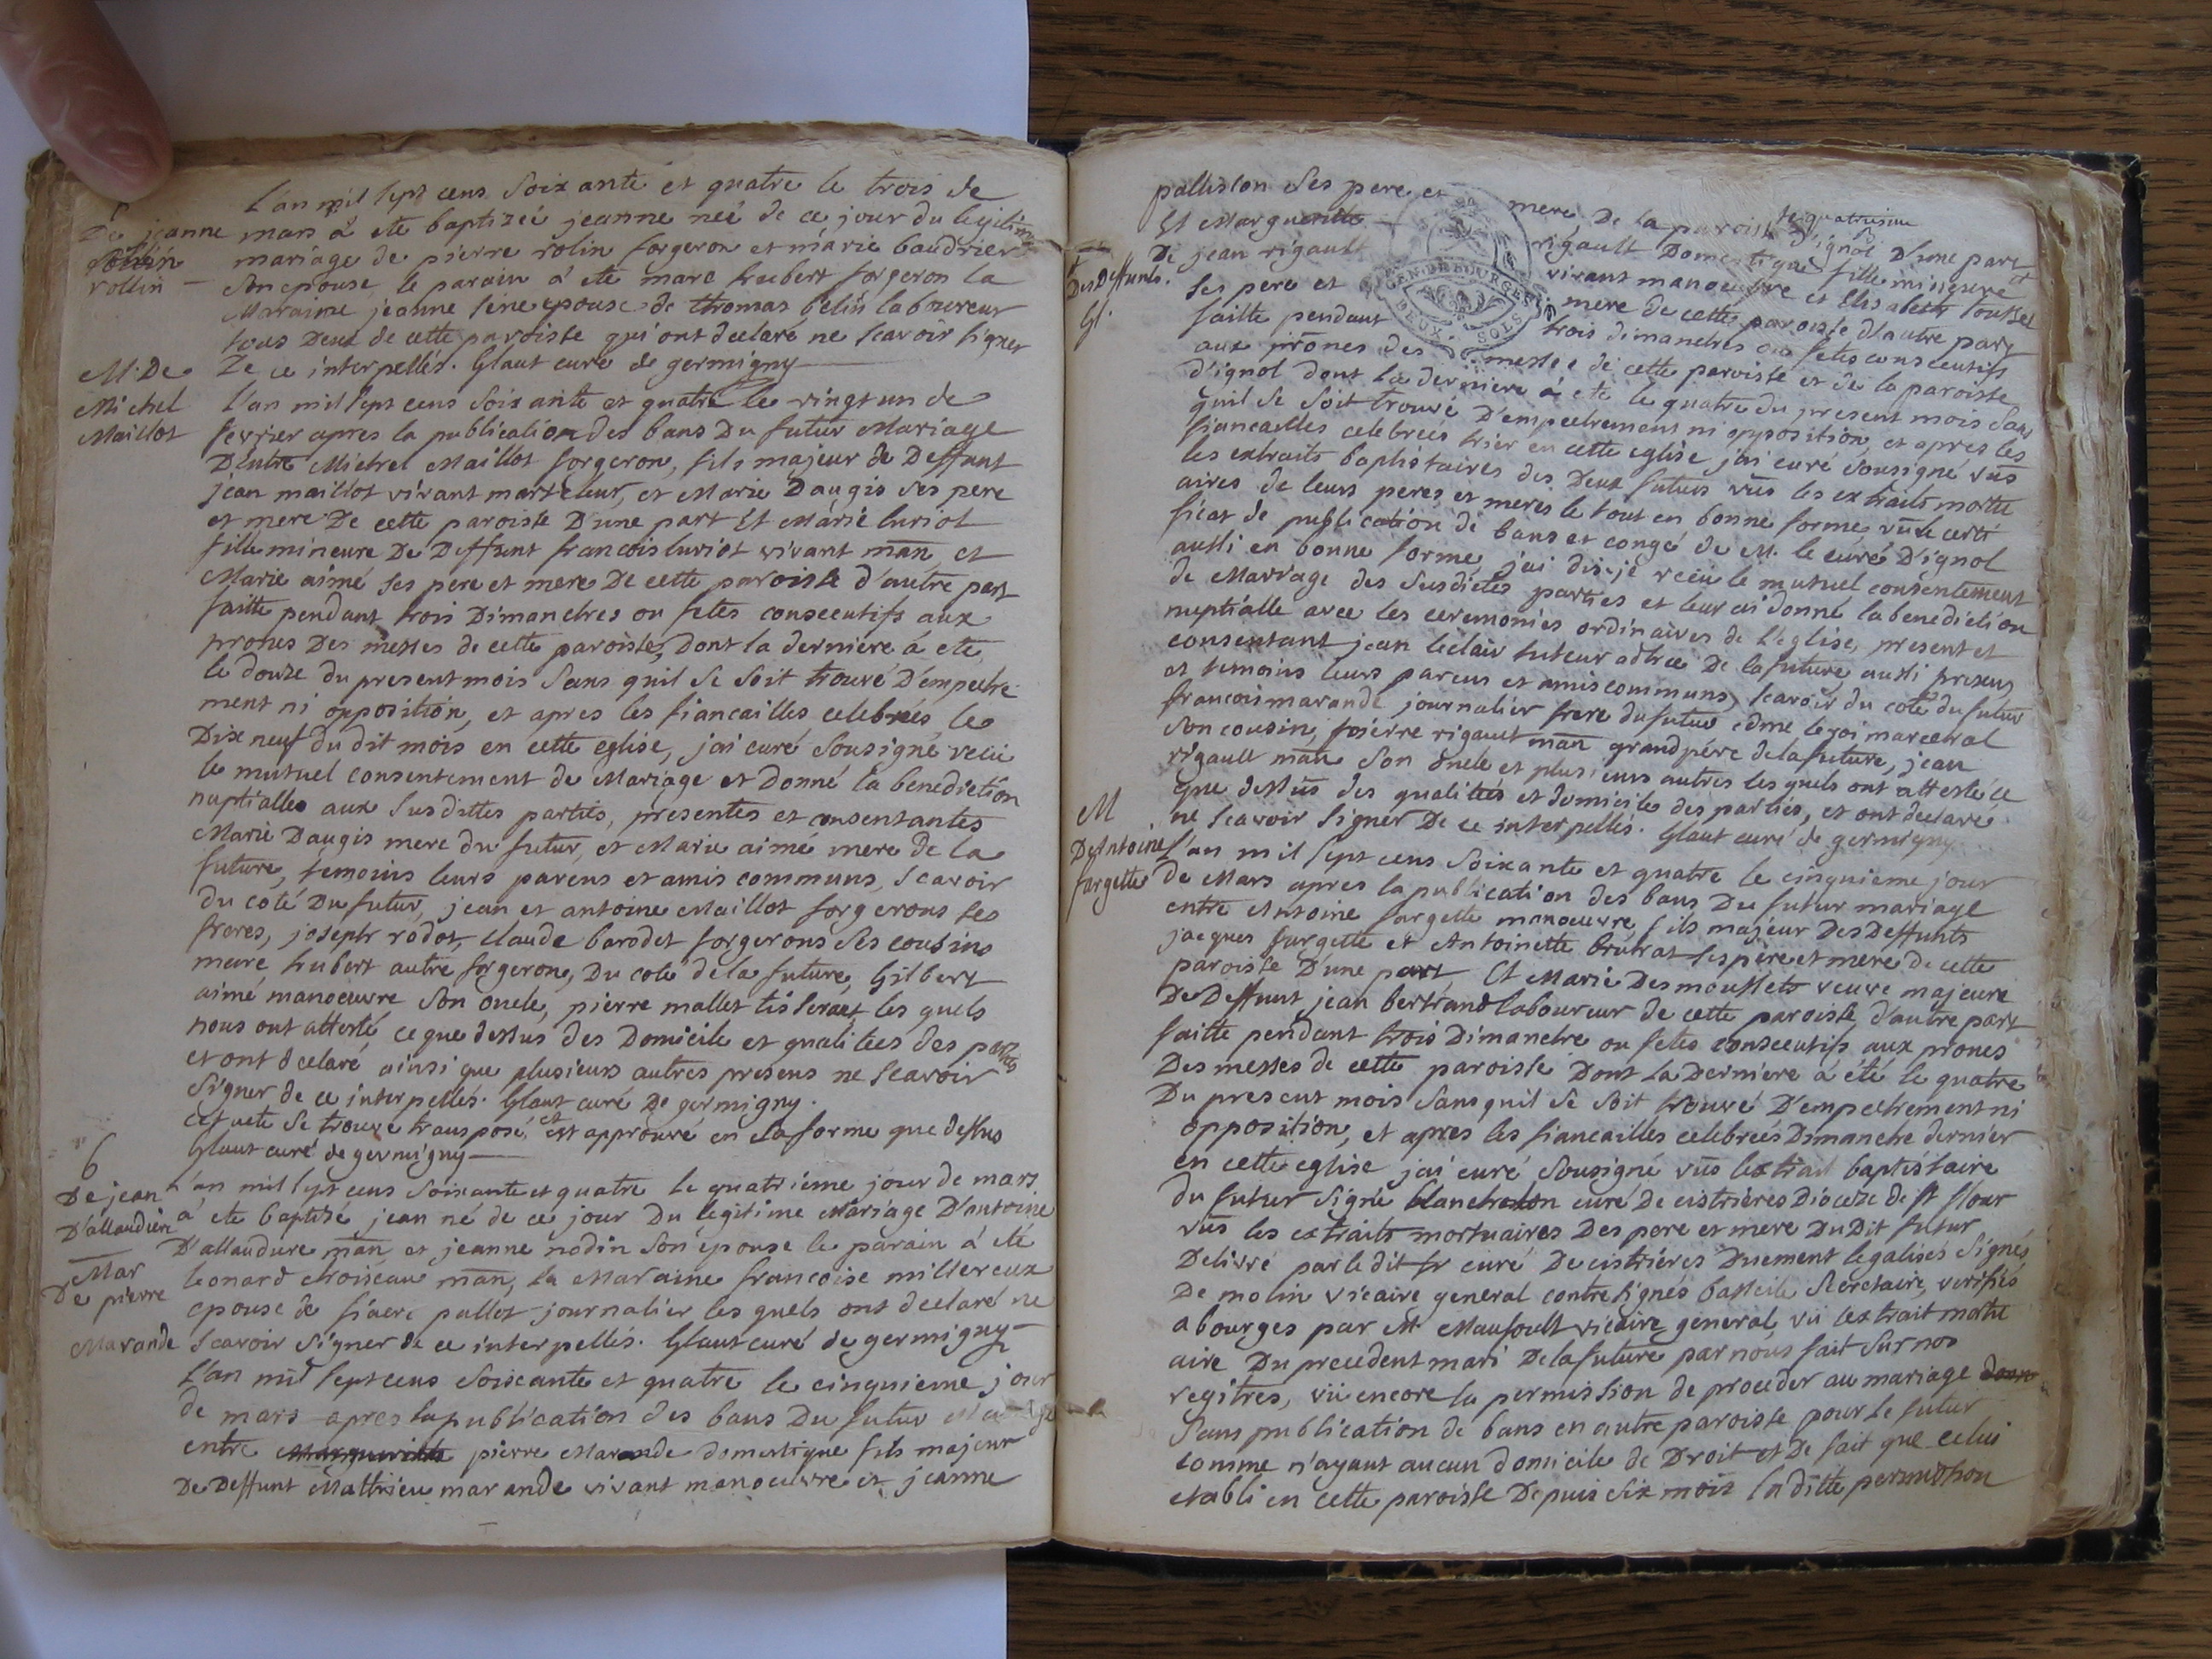 De jeanne
rollin
L'an mil sept cens soixante et quatre le trois de
mars à ete baptizeé jeanne neé de ce jour du legitime
mariage de pierre rolin forgeron et marie baudrier
son epouse, le parain à ete marc hubert forgeron la
Maraine jeanne epouse de thomas belin laboureur
tous Deux de cette paroisse qui ont declaré ne scavoir signer
De ce interpellés. Glaut curé de germigny
M. De
Michel
Maillot
L'an mil sept cens soixante et quatre le vingt un de
fevrier apres la publication des bans Du futur Mariage
D'entre Michel Maillot forgeron, fils majeur de Deffunt
jean maillot vivant marteleur, et Marie Daugis ses pere
et mere De cette paroisse D'une part Et Marie luriot
fille mineure De Deffunt francois luriot vivant man et
Marie aimé ses pere et mere De cette paroisse d'autre part
faitte pendant trois Dimanches ou fetes consecutifs aux
prones Des messes de cette paroisse, Dont la derniere à ete
le douze du present mois sans quil se soit trouvé D'empeche
ment ni opposition, et apres les fiancailles celebreés le
Dix neuf du dit mois en cette eglise, jai curé sousigné recu
le mutuel consentement de Mariage et donné la benediction
nuptialle aux susdittes parties, presentes et consentantes
Marie Daugis mere du futur, et Marie aimé mere de la
future, temoins leurs parens et amis communs, scavoir
du coté Du futur, jean et antoine Maillot forgerons ses
freres, joseph rodot, claude barodet forgerons ses cousins
marc hubert autre forgeron, Du coté de la future, Gilbert
aimé manoeuvre son oncle, pierre mallet tisserant les quels
nous ont attesté ce que dessus des Domicile et qualitees des parties
et ont declaré ainsi que plusieurs autres presens ne scavoir
signer de ce interpellés. Glaut curé De germigny.
cet acte se trouve transposé, et est approuvé en sa forme que dessus
Glaut curé de germigny
6
De jean
D'allaudiere
L'an mil sept cens soixante et quatre le quatrieme jour de mars
à ete baptisé jean né de ce jour Du legitime Mariage D'antoine
D'allaudure man et jeanne nodin son epouse le parain à eté
leonard choiseau man, la Maraine francoise millereux
epouse de fiacre pallet journalier les quels ont declaré ne
scavoir signer de ce interpellés. Glaut curé de germigny
Mar
De pierre
Marande
L'an mil sept cens soixante et quatre le cinquieme jour
de mars apres la publication des bans Du futur Mariage
entre pierre Marande domestique fils majeur
De Deffunt Matthieu marande vivant manoeuvre et jeanne
pallisson ses pere et mere De la paroisse D'ignol D'une part
Et Marguerite rigault Domestique fille mineure
De jean rigault vivant manoeuvre et Elisabeth
Des Deffunts.
Gl.
ses pere et mere de cette paroisse d'autre part
faitte pendant trois dimanches ou fetes consecutifs
aux prones des messes de cette paroisse et de la paroisse
d'ignol dont la derniere à eté le quatre du present mois sans
quil se soit trouvé D'empechement ni opposition, et apres les
fiancailles celebreés hier en cette eglise jai curé sousigné vûs
les extraits baptistaires des Deux futurs vûs les extraits mortu
aires de leurs peres et meres le tout en bonne forme, vûs le certi
ficat de publication de bans et congé de M. le curé D'ignol
aussi en bonne forme, jai dis-je recu le mutuel consentement
de Mariage des susdictes parties et leur ai donné la benediction
nuptialle avec les ceremonies ordinaires de l'eglise, present et
consentant jean leclair tuteur adhoc De la future, aussi presens
et temoins leurs parens et amis communs, scavoir du coté du futur
francois marande journalier frere du futur edme leroi marechal
son cousin, pierre rigault man grand pére de la future, jean
rigault man son oncle et plusieurs autres les quels ont attesté ce
que dessus des qualitées et domicile des parties, et ont declaré
ne scavoir signer De ce interpellés. Glaut curé de germigny
M
De Antoine
fargette
L'an mil sept cens soixante et quatre le cinquieme jour
de Mars apres la publication des bans Du futur mariage
entre Antoine fargette manoeuvre, fils majeur Des Deffunts
jacques fargette et Antoinette brutrat ses pere et mere de cette
paroisse D'une part Et Marie Desmousslets veuve majeure
De Deffunt jean bertrand laboureur de cette paroisse, d'autre part
faitte pendant trois Dimanche ou fetes consecutifs aux prones
Des messes de cette paroisse Dont la Derniere à été le quatre
Du present mois sans quil se soit trouvé D'empechement ni
opposition, et apres les fiancailles celebreés Dimanche dernier
en cette eglise jai curé sousigné vûs lextrait baptistaire
du futur signé blanchelon curé De cistrieres Diocese de st flour
vûs les extraits mortuaires Des pere et mere Du Dit futur
Delivré par le dit sr curé De cistriéres Duement legalisés signés
De molin vicaire general contresignés basseile secretaire, verifiés
a bourges par M. Maufoult vicaire general, vû lextrait mortu
aire Du precedent mari De la future par nous fait sur nos
regitres, vû encore la permission de proceder au mariage
sans publication de bans en autre paroisse pour le futur
comme n'ayant aucun domicile de Droit et De fait que celui
etabli en cette paroisse Depuis six mois la ditte permission
GEN. DE BOURGES
DEUX SOLS